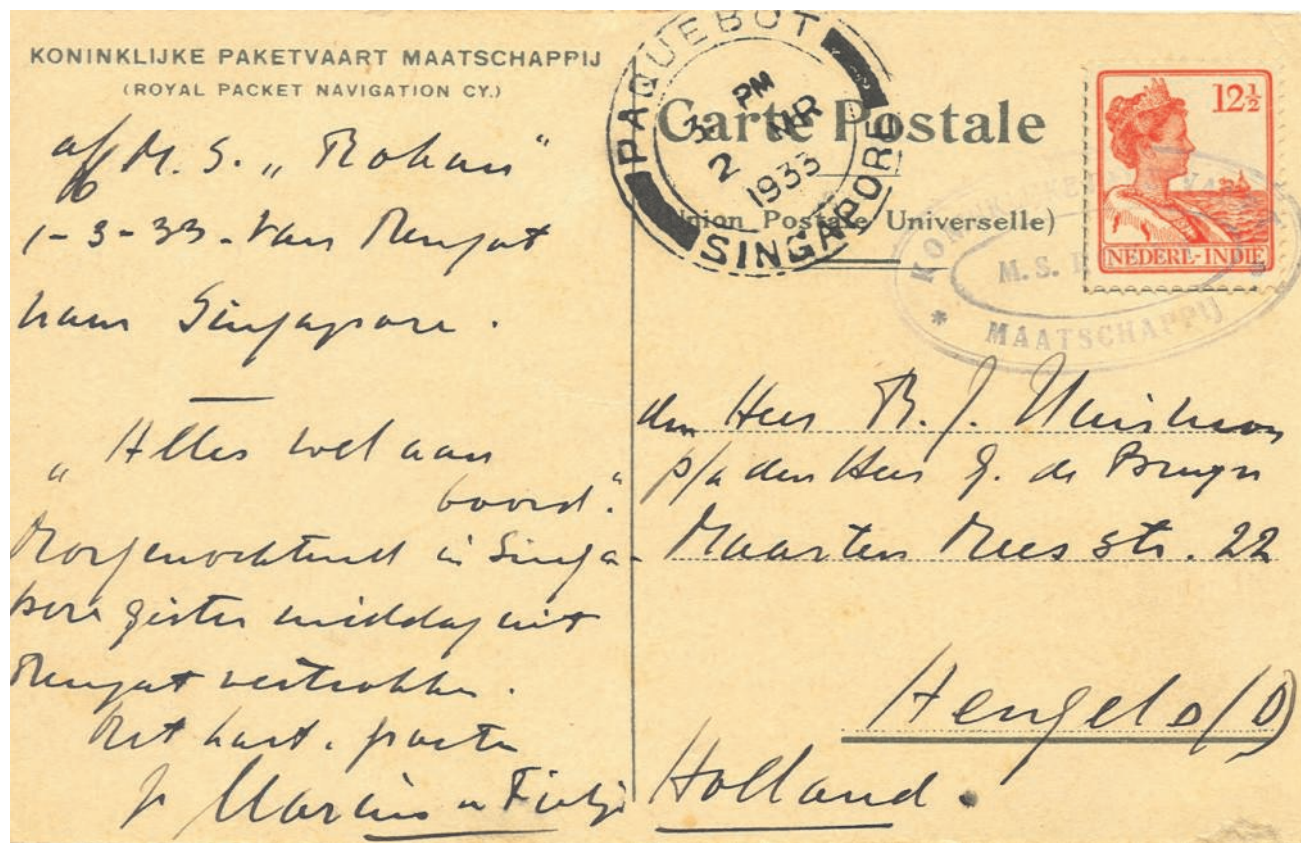 KONINKLIJKE PAKETVAART MAATSCHAPPIJ
(ROYAL PACKET NAVIGATION CY.)
a/b M.S. „Rokan"
1-3-33 - Van Rengat
naar Singapore.
„Alles wel aan
boord."
Morgenochtend in Singa-
pore gister middag uit
Rengat vertrokken.
Met hart. groeten
Marius en Fietje
PAQUEBOT
3 PM
2 MR
1933
SINGAPORE
Carte Postale
(Union Postale Universelle)
12½
NEDERL-INDIE
KONINKLIJKE PAKETVAART
M.S. R
MAATSCHAPPIJ
den Heer R. J.
p/a den Heer G. de Bruyn
Maarten Mees str. 22
Hengelo (O)
Holland.